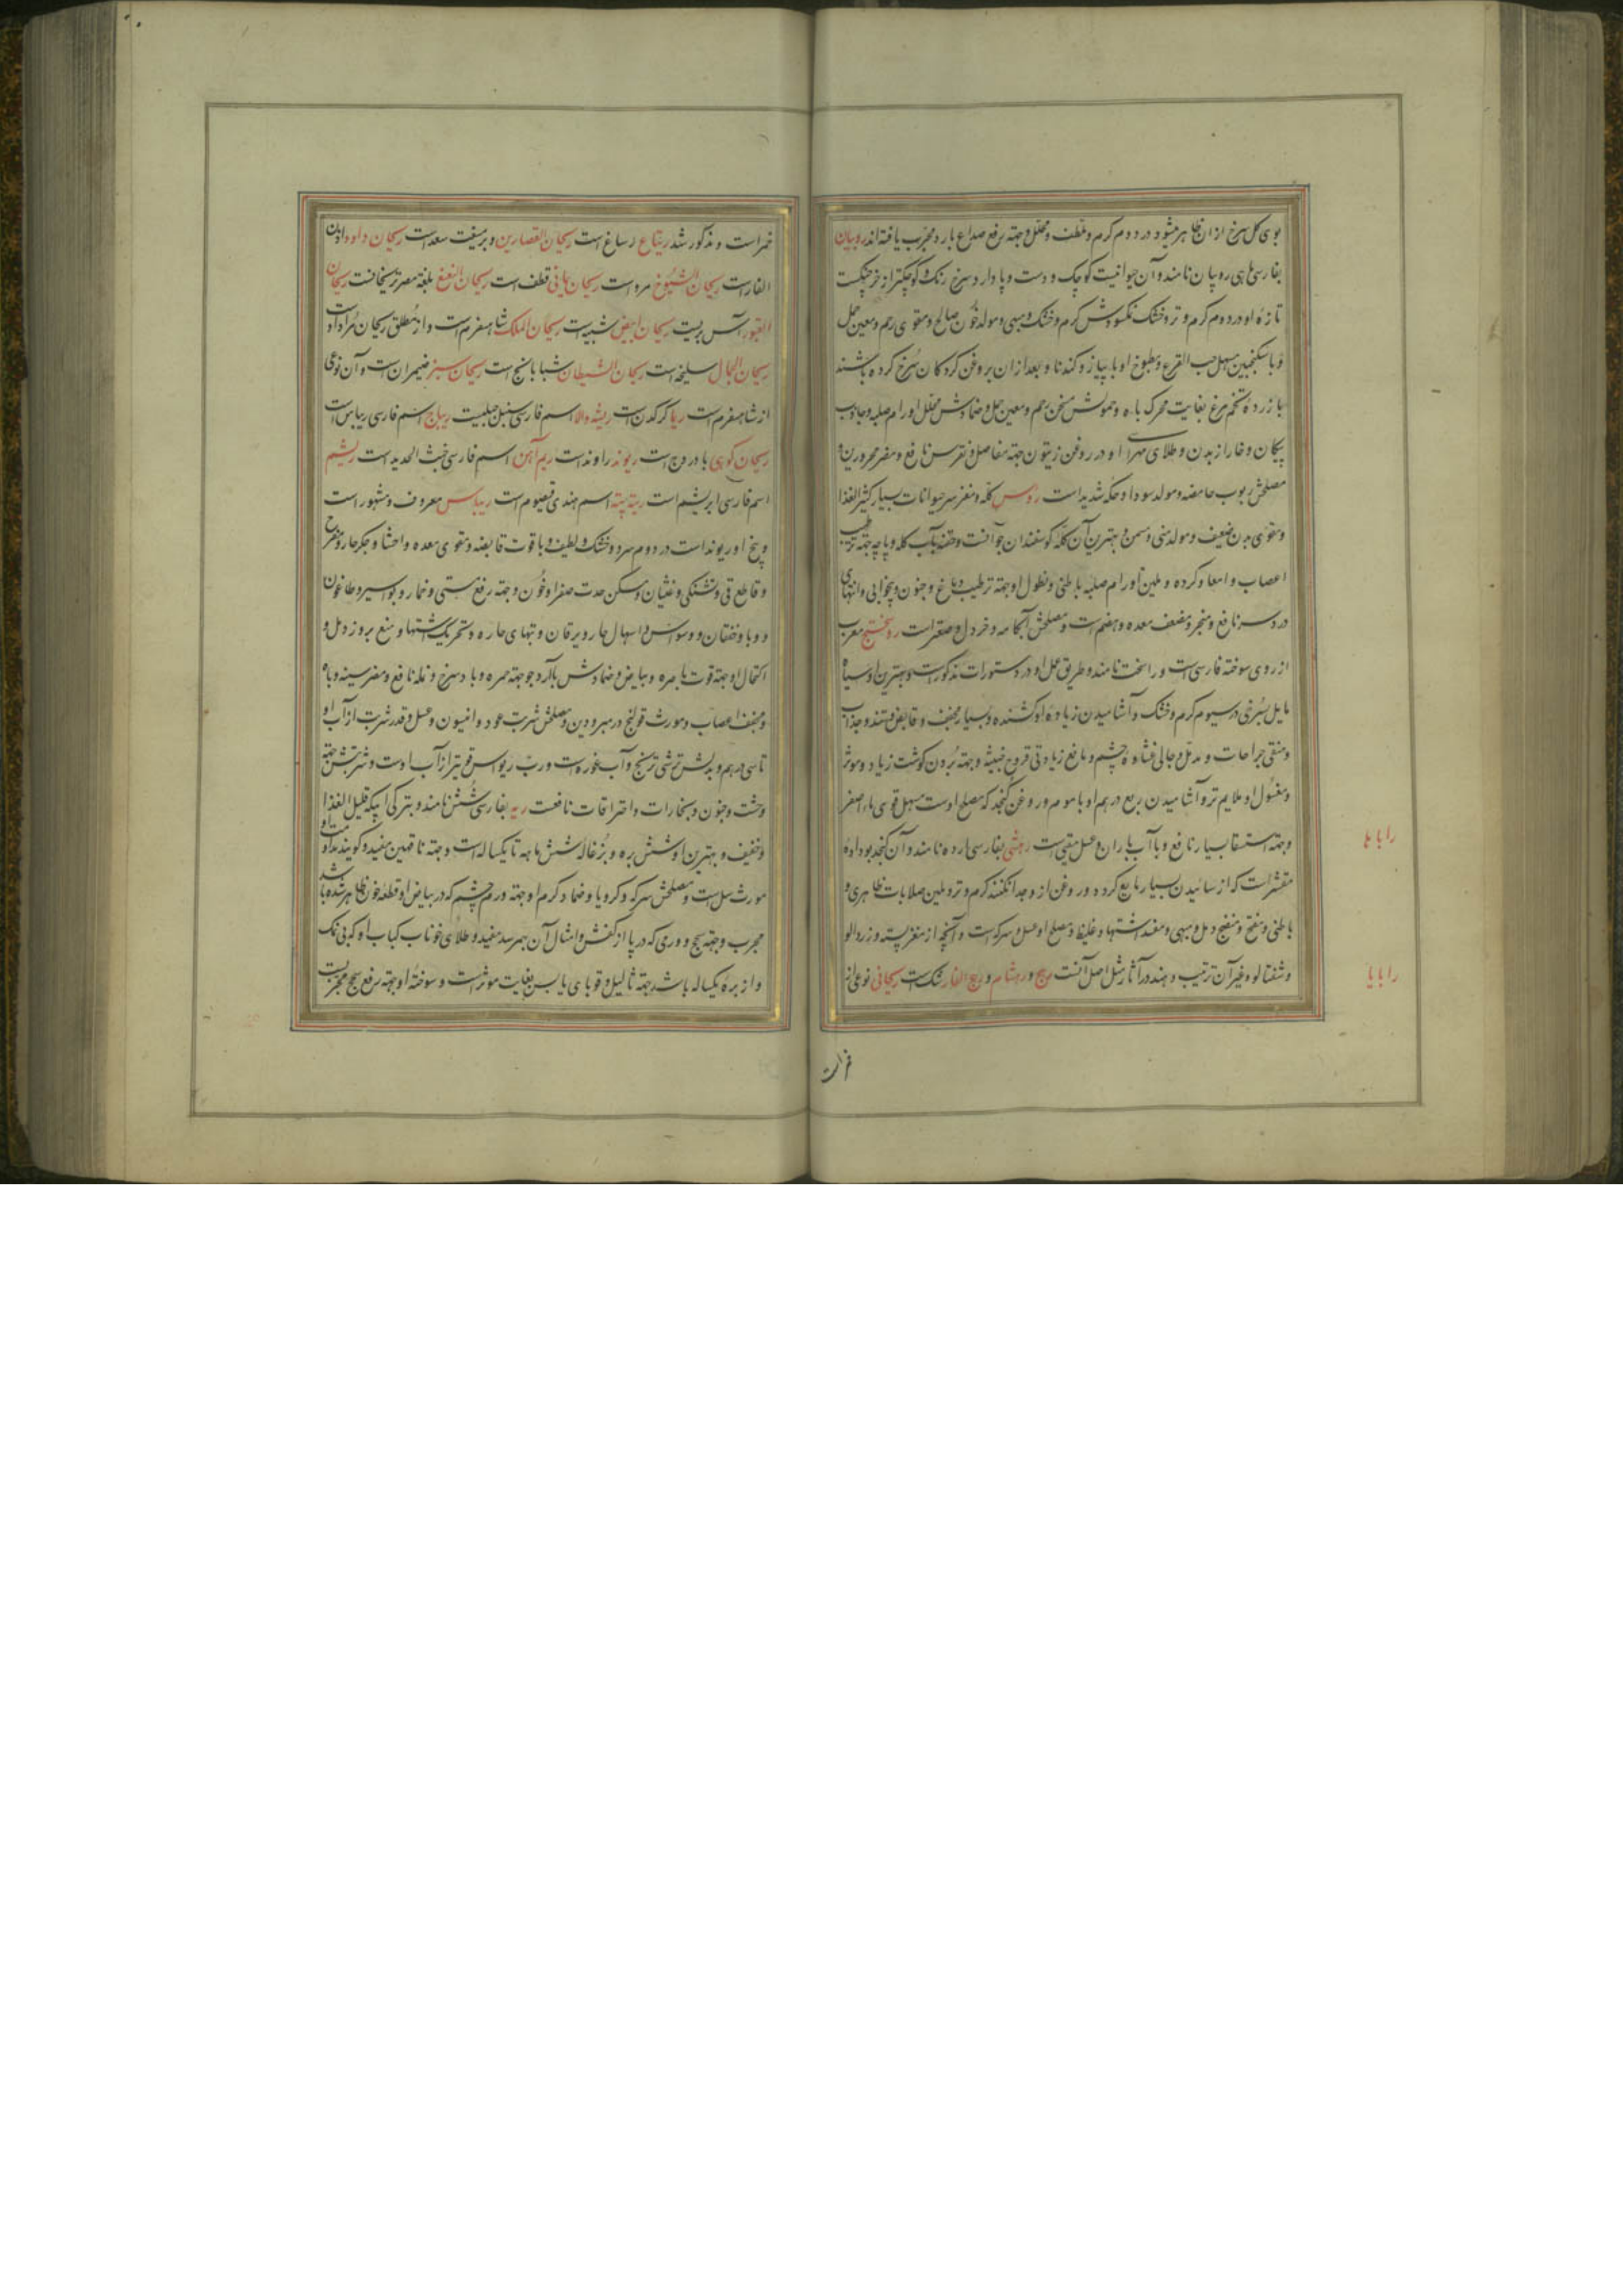 بوی گل سرخ از ان ظاهر میشود در دوم گرم و ملطف و محلل و جهة رفع صداع بارد مجرب یافته اند روبیان
بفارسی ماهی روبیان نامند و آن حیوانیست کوچک و دست و پا دار و سرخ رنگ و کوچکتر از خرچنگست
تازهٔ او در دوم گرم و تر و خشک نمکسودش گرم و خشک و مبهی و مولد خون صالح و مقوی رحم و معین حمل
و با سکنجبین مسهل حب القرع و مطبوخ او با پیاز و کندنا و بعد از ان بروغن کردکان سرخ کرده باشند
با زردهٔ تخم مرغ بغایت محرک باه و حمولش مسخن رحم و معین حمل و ضمادش محلل اورام صلبه و جاذب
پیکان و خار از بدن و طلای مهرای او در روغن زیتون جهة مفاصل و نقرس نافع و مضر محرورین و
مصلحش ربوب حامضه و مولد سودا و حکه شدیداست روس کله و مغز سر حیوانات بسیار کثیر الغذا
و مقوی بدن ضعیف و مولد منی و مسمن و بهترین آن کله گوسفندان جوانست و حقنه بآب کله و پاچه جهة ترطیب
اعصاب و امعا و گرده و ملین اورام صلبه باطنی و نطول او جهة ترطیب دماغ و جنون و بیخوابی و انتهای
درد سر نافع و مبخر و مضعف معده و هضم است و مصلحش آبکامه و خردل و صعتر است روسختج معرب
از روی سوخته فارسی است و راسخت نامند و طریق عمل او در دستورات مذکورست و بهترین او سیاه
مایل بسرخی در سیوم گرم و خشک و آشامیدن زیادهٔ او کشنده و بسیار مجفف و قابض و تند و جذاب
و منقی جراحات و مدمل و جالی غشاوهٔ چشم و مانع زیادتی قروح خبیثه و جهة بردن گوشت زیاد و موثر
و مغسول او ملایم تر و آشامیدن ربع درهم او با موم و روغن کنجد که مصلح اوست مسهل قوی ماء اصفر
و جهة استسقا بسیار نافع و با آب باران و عسل مقیی است رهشی بفارسی ارده نامند و آن کنجد بو داده
مقشر است که از سائیدن بسیار مایع گردد و روغن از و جدا نکنند گرم و تر و ملین صلابات ظاهری و
باطنی و مفتح و منضج دمل و مبهی و مفسد اشتها و غلیظ و مصلح او عسل و سرکه است و آنچه از مغز پسته و زردالو
و شفتالو و غیر آن ترتیب دهند در آثار مثل اصل آنست رهج و رهشام و رهج الفار شک است ریحانی نوعی از
خمر است
خمر است و مذکور شد ریتاع رساغ است ریحان القصارین و بریست سعد است ریحان داود اذان
الفار است ریحان الشیوخ مرو است ریحان یمانی قطف است ریحان النعنع بلغة مصر ترنجانست ریحان
القبور آس بریست ریحان ابیض شیبه است ریحان الملک شاهسفرم است و از مطلق ریحان مراد اوست
ریحان الجمال سلیخه است ریحان الشیطان شبابانج است ریحان سبز ضیمران است و آن نوعی
از شاهسفرم است ریما کرکدن است ریشه والا اسم فارسی سنبل جبلیست ریباج اسم فارسی ریباس است
ریحان کوهی بادروج است ریوند راوند است ریم آهن اسم فارسی خبث الحدید است ریشم
اسم فارسی ابریشم است اسم هندی قیصوم است ریباس معروف و مشهور است
و بیخ او ریوند است در دوم سرد و خشک و لطیف و با قوت قابضه و مقوی معده و احشا و جگر حار و مفرح
و قاطع قی و تشنگی و غثیان و مسکن حدت صفرا و خون و جهة رفع مستی و خمار و بواسیر و طاعون
و وبا و خفقان و وسواس و اسهال حار و یرقان و تبهای حاره و تحریک اشتها و منع بروز دمل و
اکتحال او جهة قوت باصره و بیاض و ضمادش با آرد جو جهة حمره و باد سرخ و نمله نافع و مضر سینه و باه
و مجفف اعصاب و مورث قولنج در مبرودین و مصلحش شربت عود و انیسون و عسل و قدر شربت از آب او
تا سی درهم و بدلش ترشی ترنج و آب غوره است و رب ریواس قویتر از آب اوست و شربتش جهة
وحشت و جنون و بخارات و احتراقات نافعست ریه بفارسی شش نامند و بترکی اپکه قلیل الغذا
و خفیف و بهترین او شش بره و بزغاله شش ماهه تا یکساله است و جهة ناقهین مفید و گویند مداومت او
مورث سل است و مصلحش سرکه و کرویا و ضماد گرم او جهة ورم چشم که در بیاض او قطعه خون ظاهر شده باشد
مجرب و جهة سحج و ورمی که در پا از کفش و امثال آن بهمرسد مفید و طلای خوناب کباب او که بی نمک
و از برهٔ یکساله باشد جهة ثآلیل و قوبای یابس بغایت موثر است و سوختهٔ او جهة رفع سحج مجربست